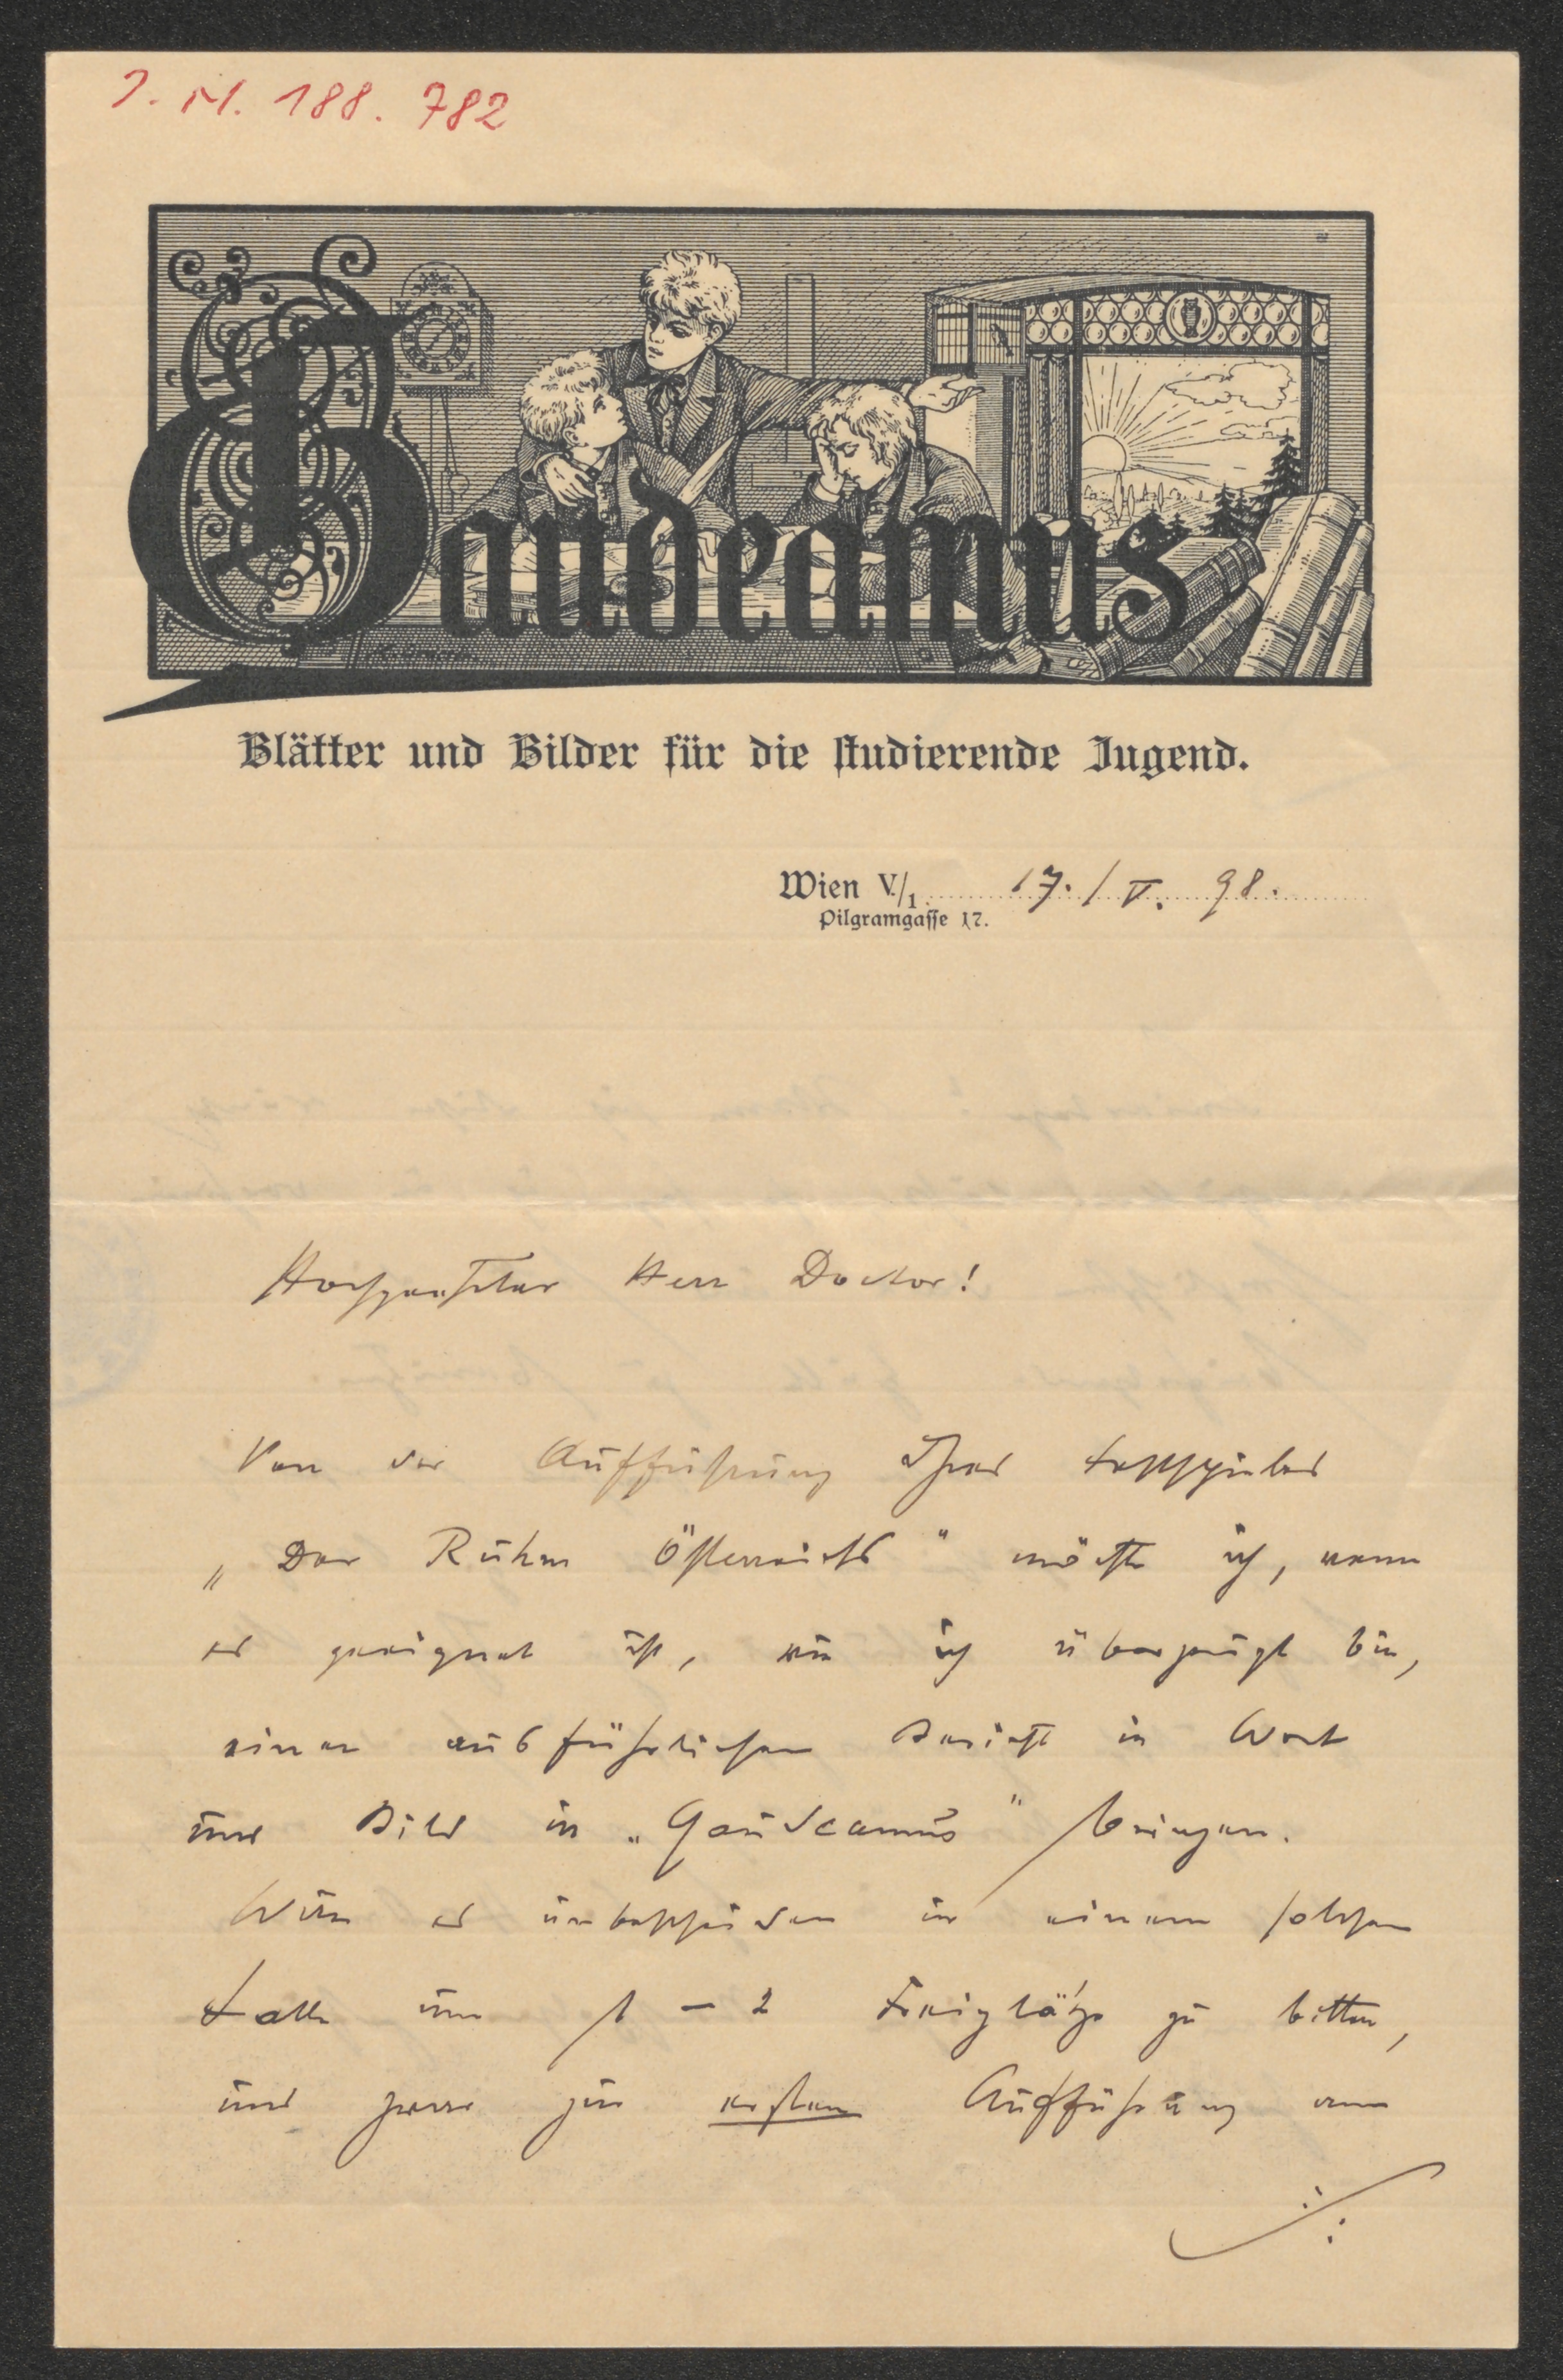 J. N. 188.782
Gaudeamus
Blätter und Bilder für die studierende Jugend.
Wien V./1. 17. / V. 98.
Pilgramgasse 17.
Hochgeehrter Herr Doctor!
Von der Aufführung Ihres Festspieles
„Der Ruhm Österreichs" möchte ich, wenn
es geeignet ist, wie ich überzeugt bin,
einen ausführlichen Bericht in Wort
und Bild in „Gaudeamus" bringen.
Wäre es unbescheiden in einem solchen
Falle um 1 – 2 Freiplätze zu bitten,
und zwar zur ersten Aufführung am